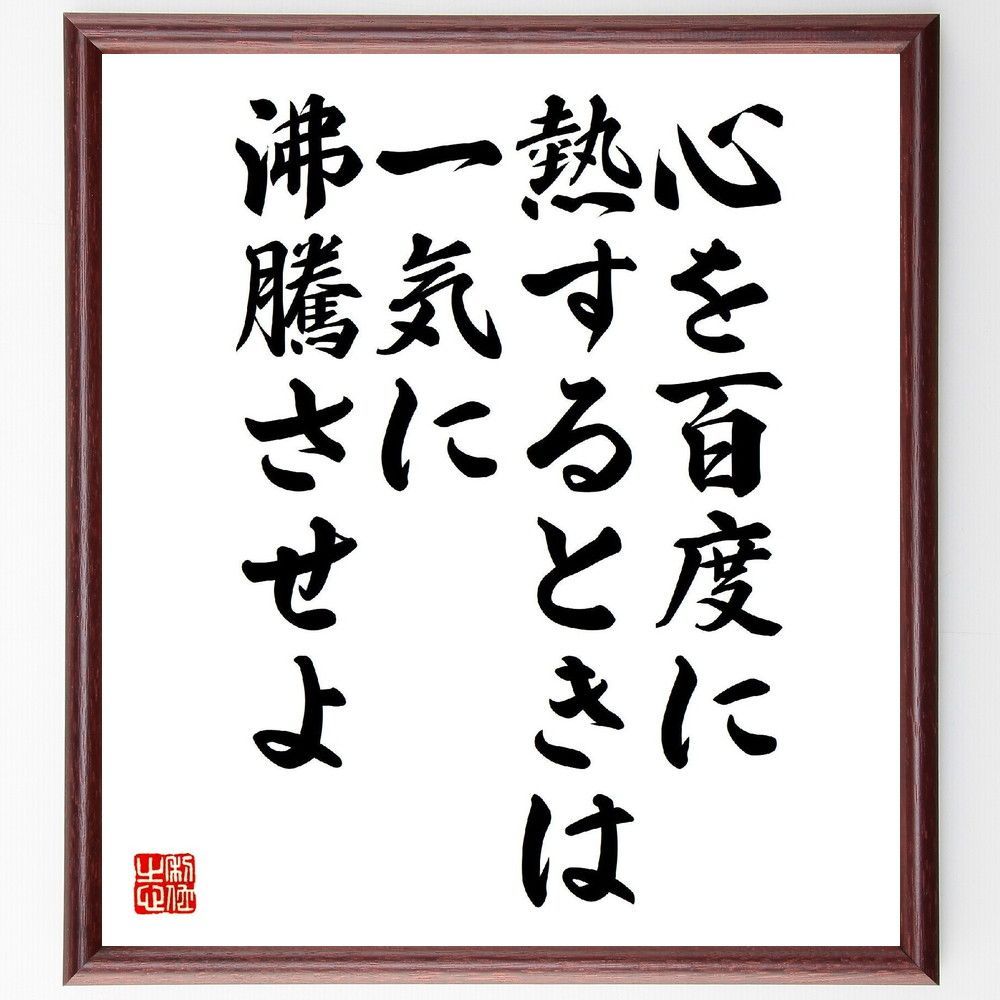 心を百度に
熱するときは
一気に
沸騰させよ